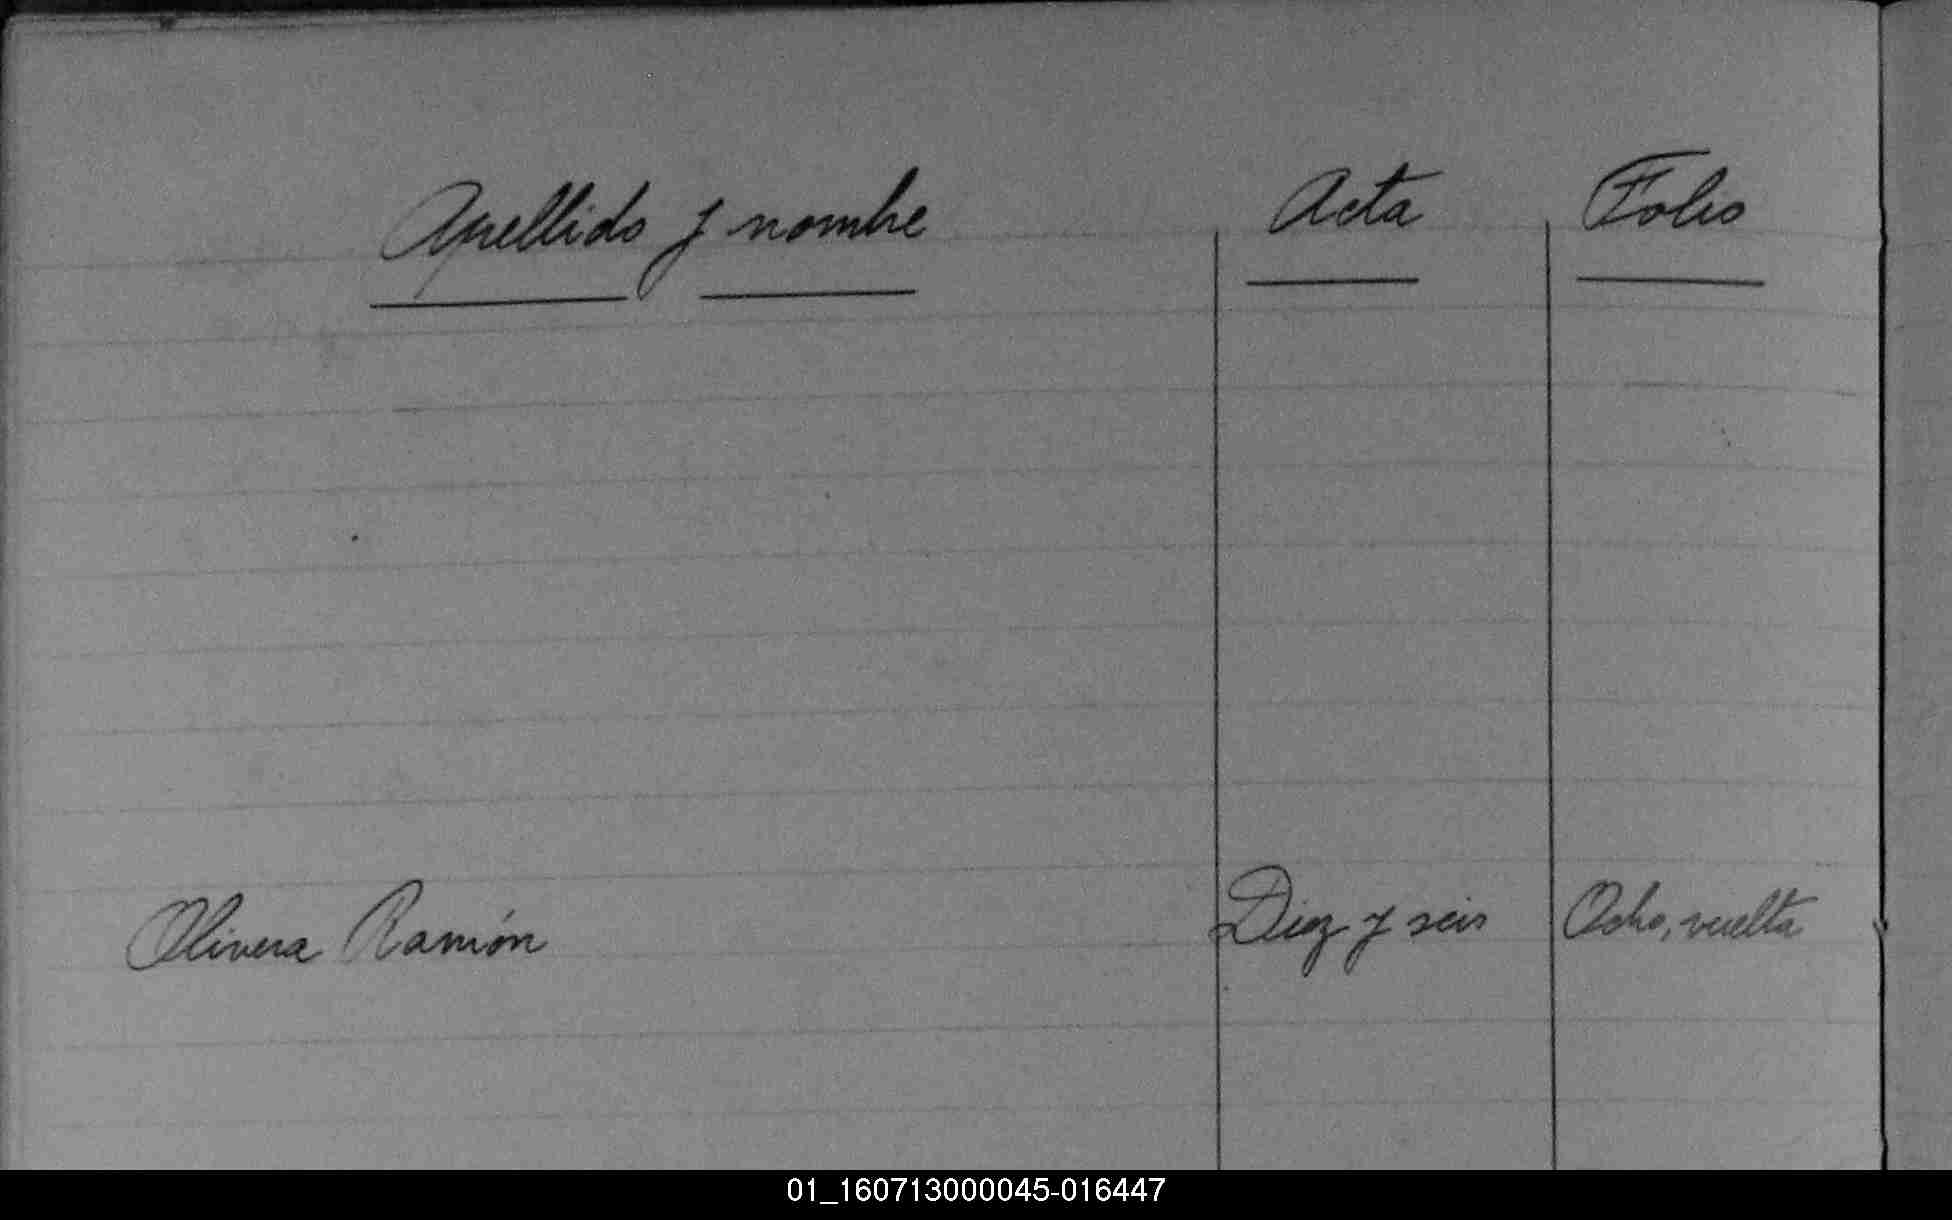 Apellido y nombre Acta Folio
Olivera Ramón Diez y seis Ocho, vuelta
01_160713000045-016447